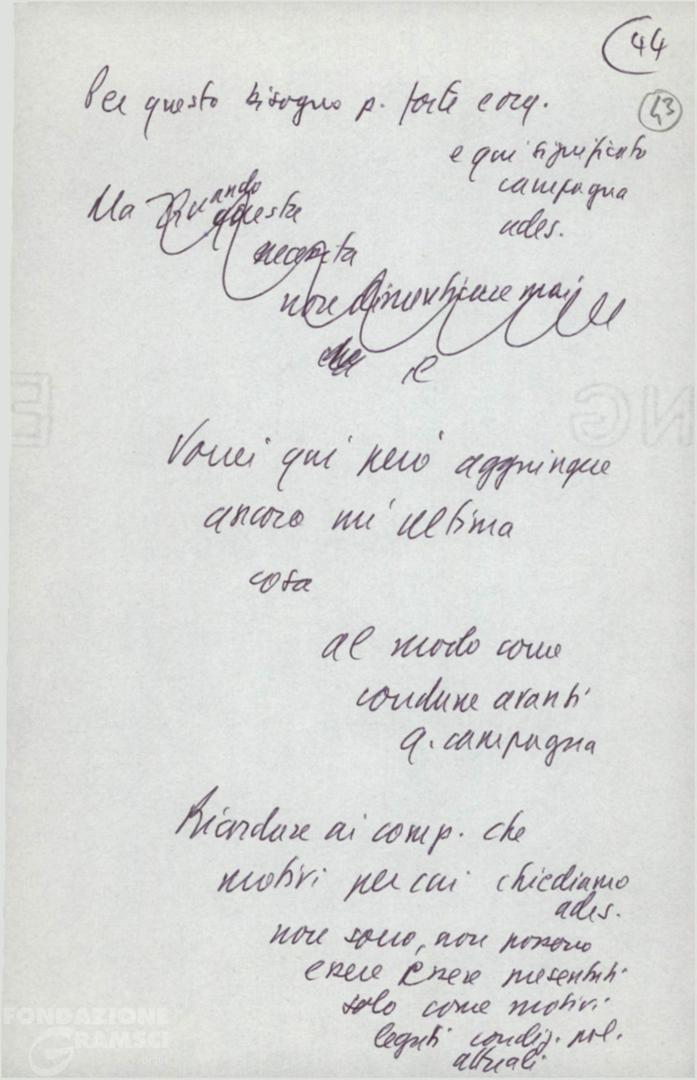 44
43
Per questo bisogno p. forte e org.
e qui significato
campagna
ades.
Ma Quando
questa
necessita
non dimenticare mai
che il
Vorrei qui però aggiungere
ancora un'ultima
cosa
al modo come
condurre avanti
q. campagna
Ricordare ai comp. che
motivi per cui chiediamo
ades.
non sono, non possono
essere essere presentati
solo come motivi
legati condiz. pol.
attuali
FONDAZIONE
GRAMSCI